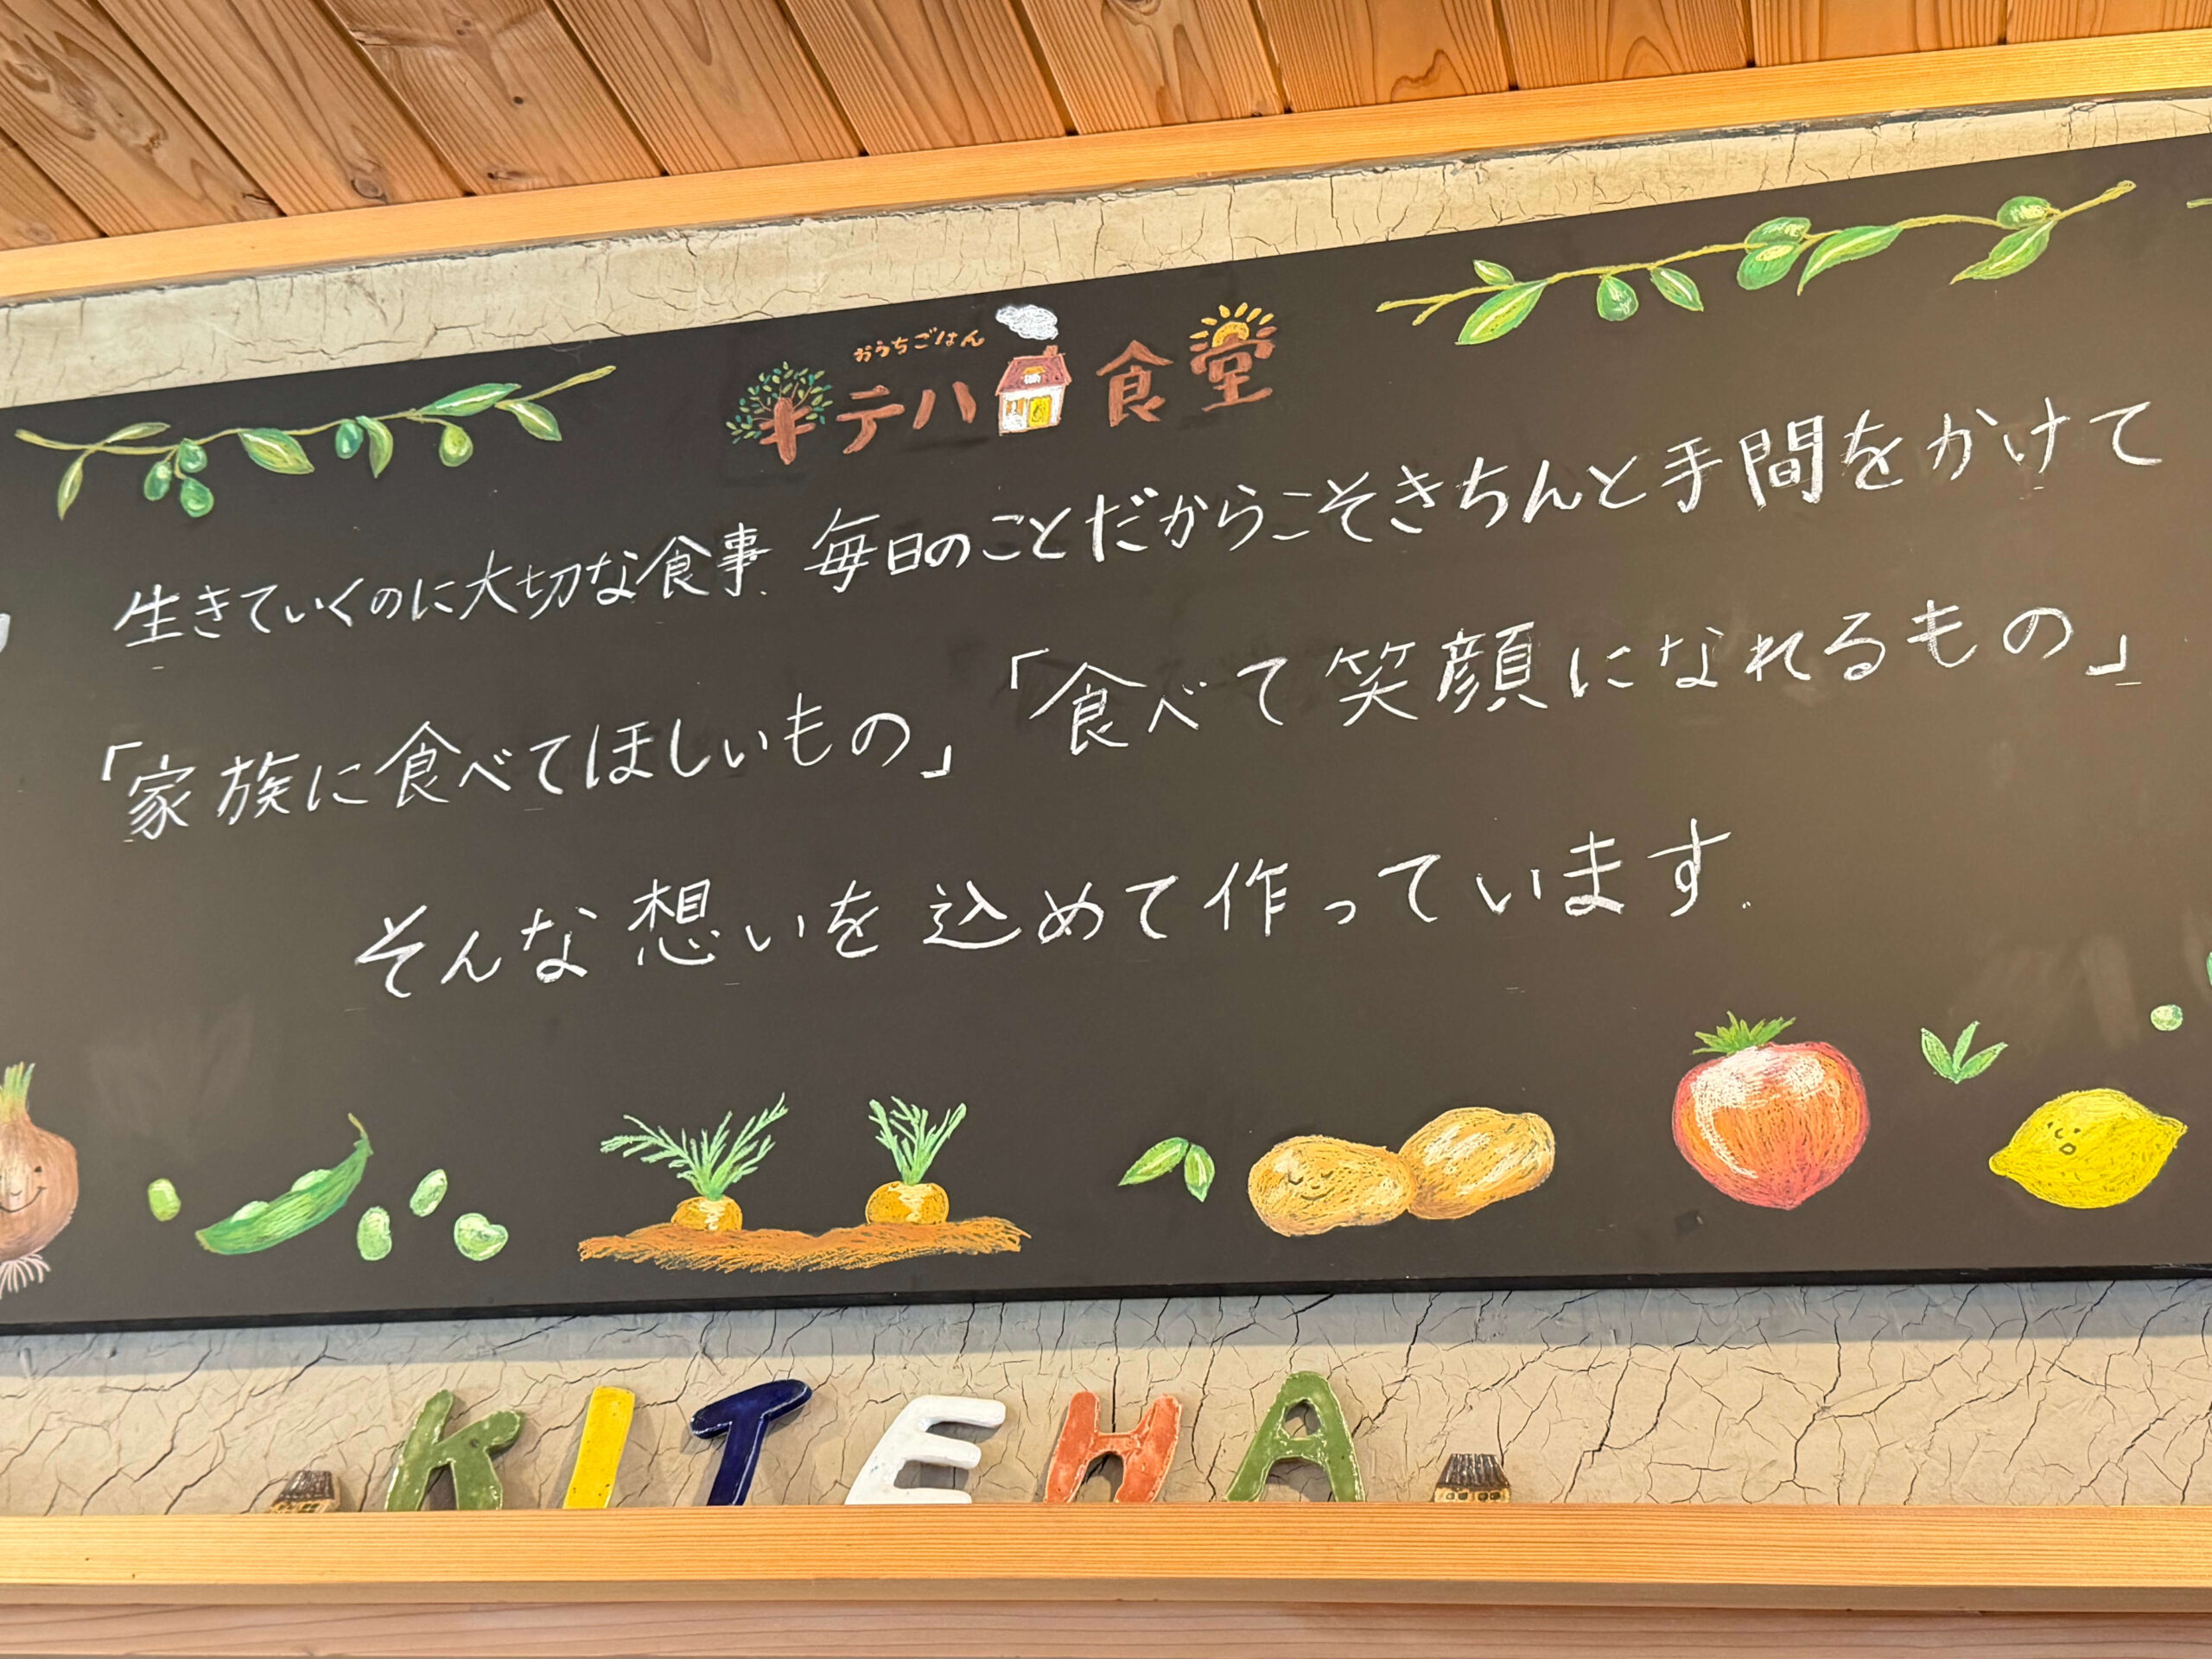 おうちごはん
キテハ食堂
生きていくのに大切な食事 毎日のことだからこそきちんと手間をかけて
「家族に食べてほしいもの」「食べて笑顔になれるもの」
そんな想いを込めて作っています
KITEHA